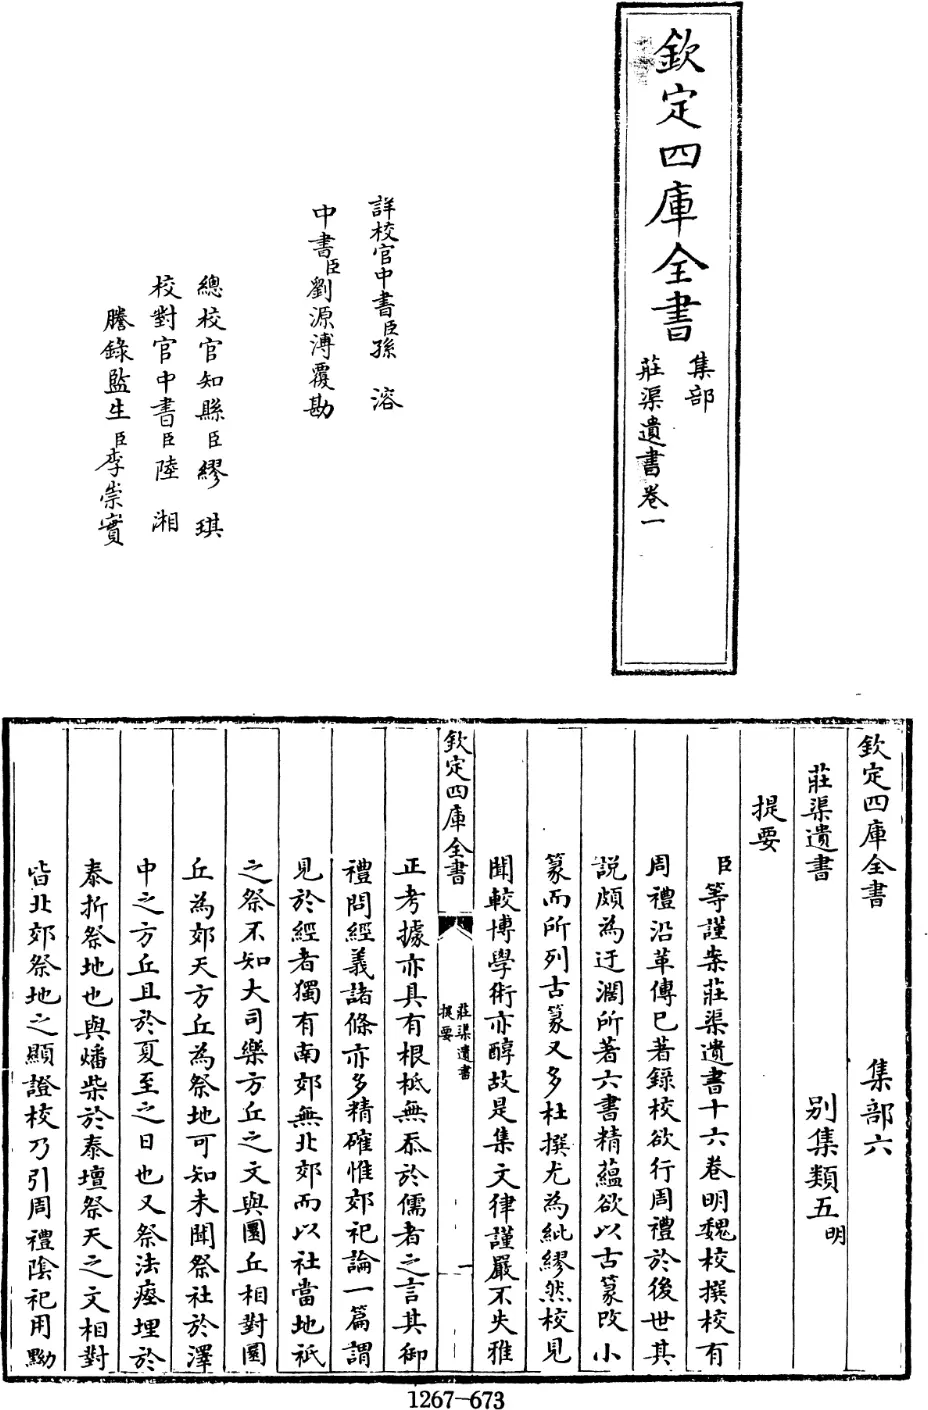 欽定四庫全書
集部
莊渠遺書卷一
詳校官中書臣孫溶
中書臣劉源溥覆勘
總校官知縣臣繆琪
校對官中書臣陸湘
謄錄監生臣李崇實
欽定四庫全書 集部六
莊渠遺書 别集類五明
提要
臣等謹案莊渠遺書十六卷明魏校撰校有
周禮沿革傳已著錄校欲行周禮於後世其
説頗為迂濶所著六書精藴欲以古篆改小
篆而所列古篆又多杜撰尤為紕繆然校見
聞較博學術亦醇故是集文律謹嚴不失雅
欽定四庫全書
莊渠遺書
提要
一
正考據亦具有根柢無忝於儒者之言其御
禮問經義諸條亦多精確惟郊祀論一篇謂
見於經者獨有南郊無北郊而以社當地祇
之祭不知大司樂方丘之文與圜丘相對圜
丘為郊天方丘為祭地可知未聞祭社於澤
中之方丘且於夏至之日也又祭法瘞埋於
泰折祭地也與燔柴於泰壇祭天之文相對
皆北郊祭地之顯證校乃引周禮陰祀用黝
1267-673